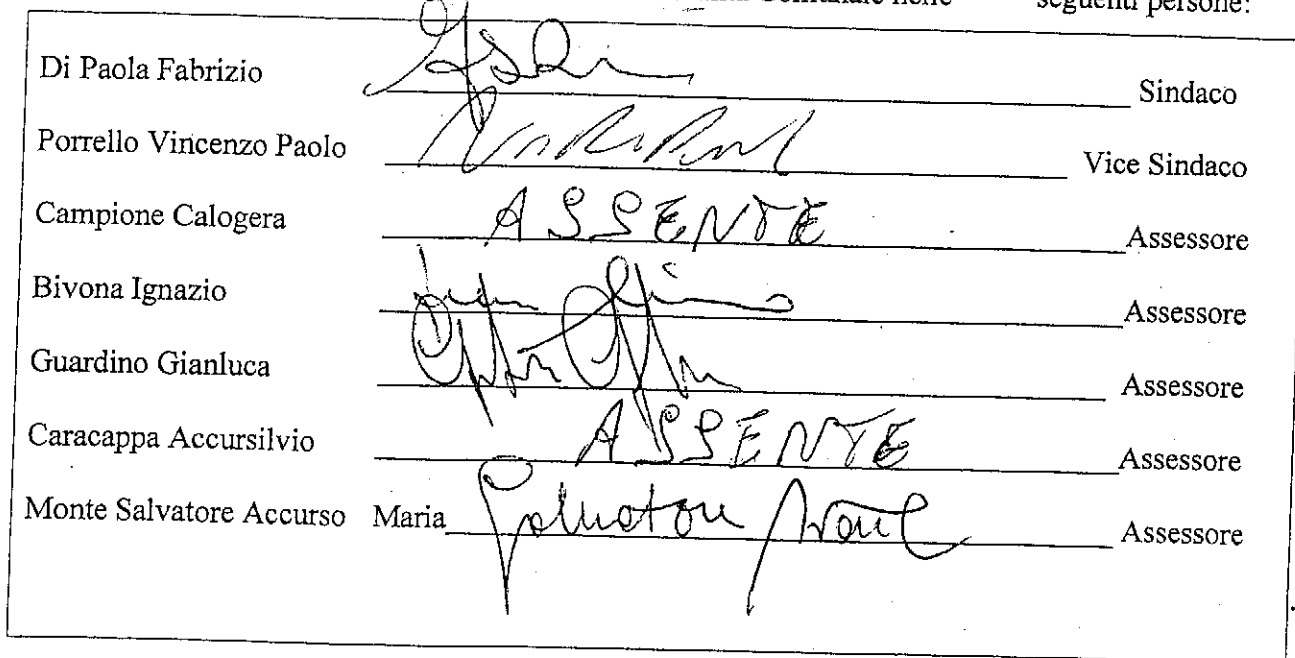 Comunale nelle seguenti persone:
Di Paola Fabrizio Sindaco
Porrello Vincenzo Paolo Vice Sindaco
Campione Calogera ASSENTE Assessore
Bivona Ignazio Assessore
Guardino Gianluca Assessore
Caracappa Accursilvio ASSENTE Assessore
Monte Salvatore Accurso Maria Salvatore Monte Assessore